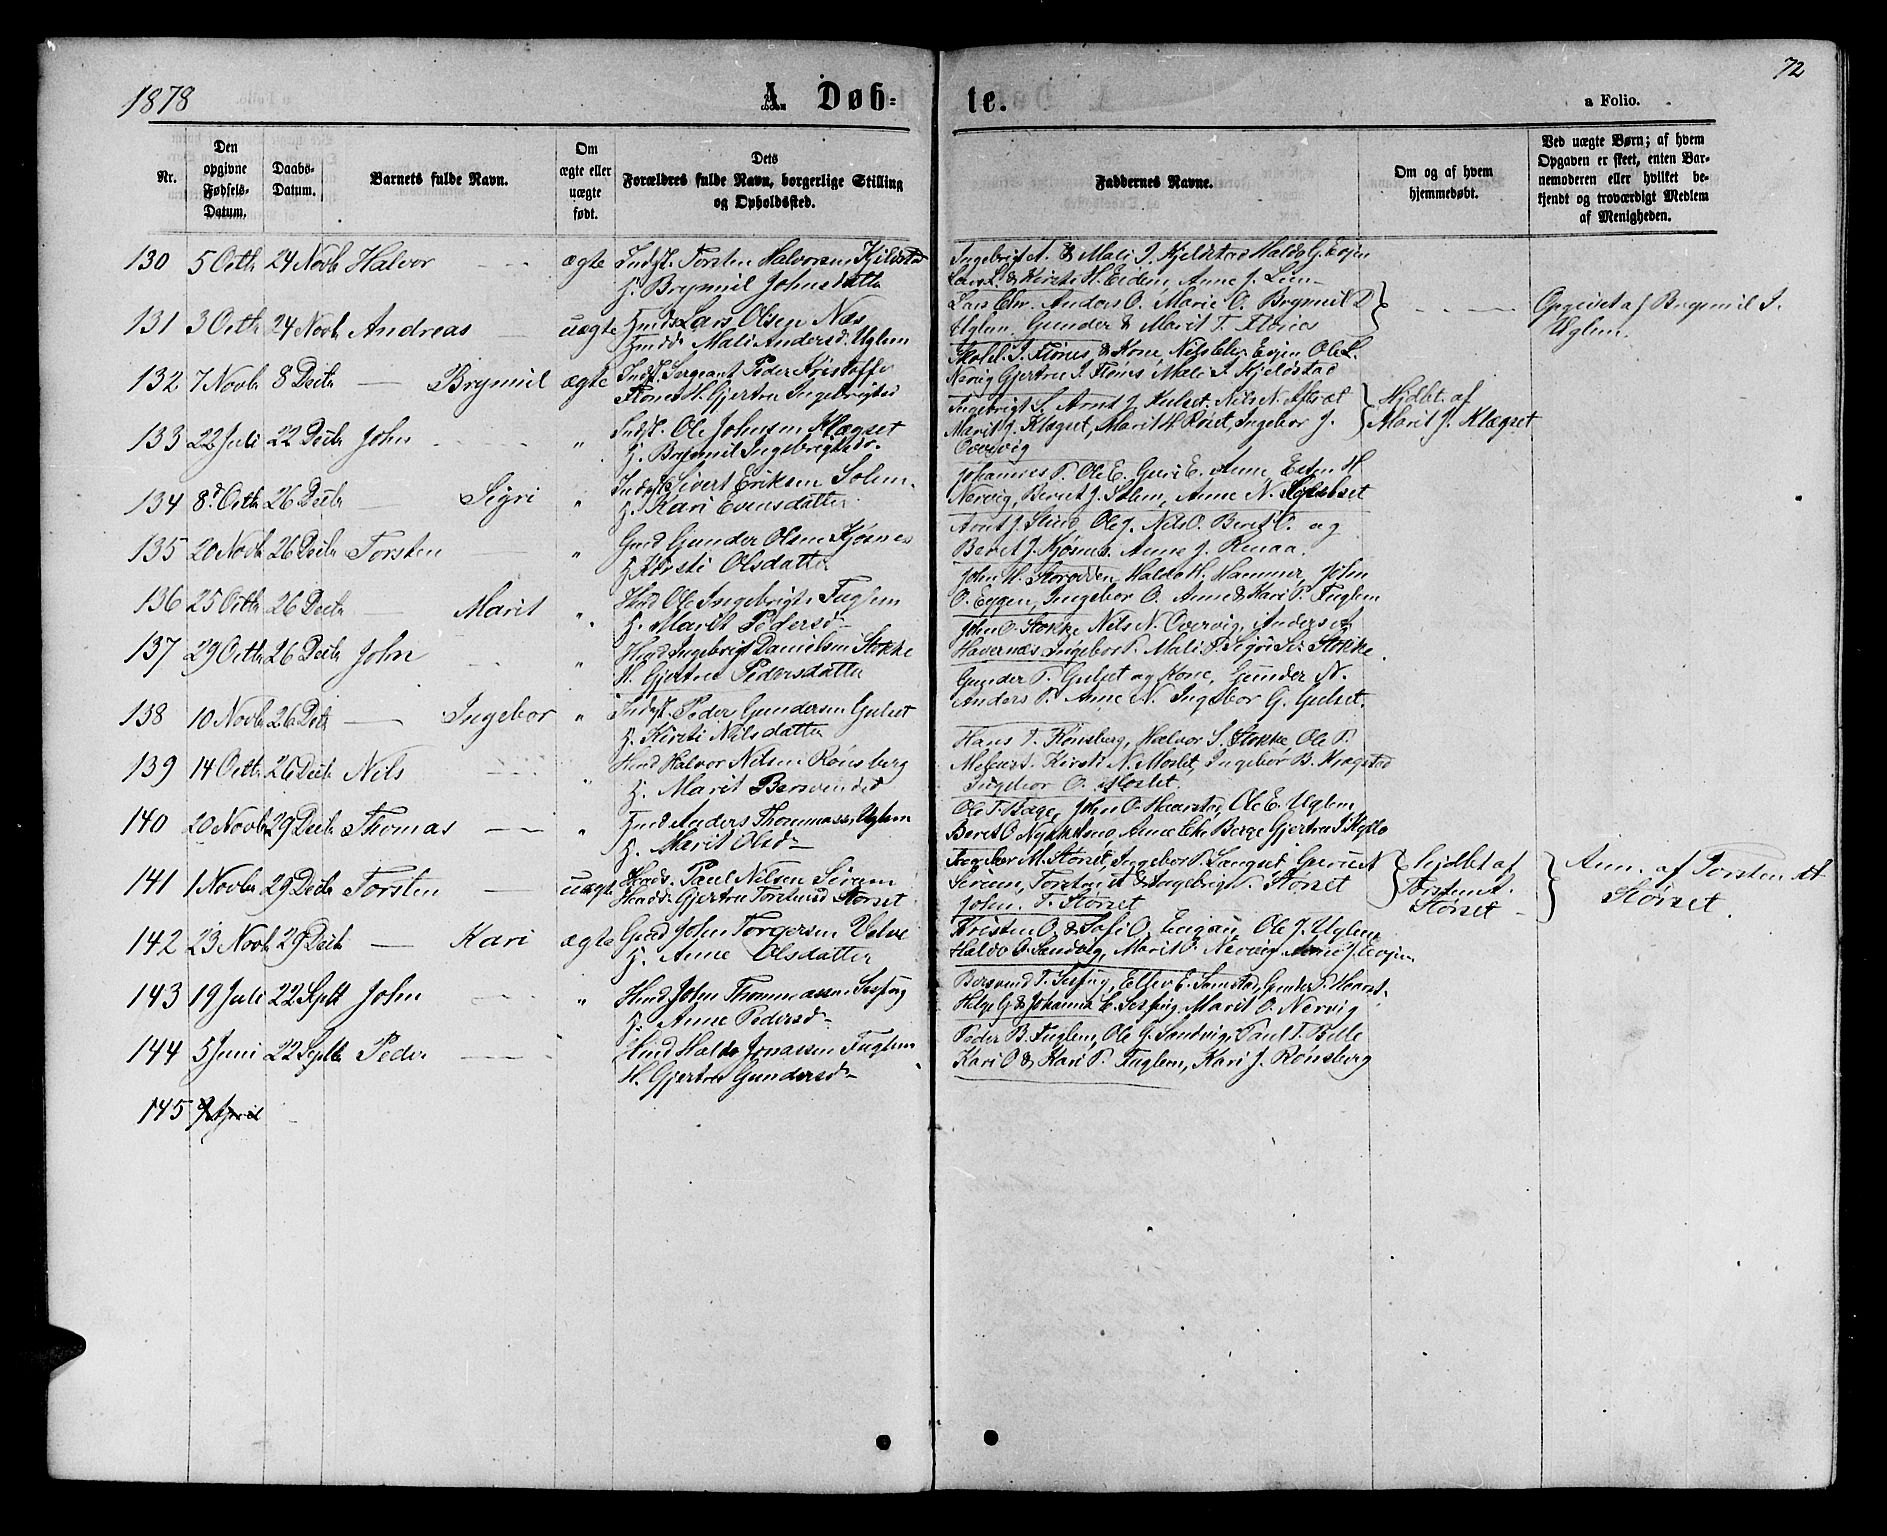 1878
A. Døb-
te.
72
a Folio.
Nr.
Den opgivne Fødsels-Datum.
Daabs-Datum.
Barnets fulde Navn.
Om ægte eller uægte født.
Dets Forældres fulde Navn, borgerlige Stilling og Opholdssted.
Faddernes Navne.
Om og af hvem hjemmedøbt.
Ved uægte Børn; af hvem Opgaven er skeet, enten Barnemoderen eller hvilket bekjendt og troværdigt Medlem af Menigheden.
130 5 Octb 24 Novb Halvor - - - ægte Indst. Torsten Halvorsen Kjeldstad
H. Brynnil Johnsdatter
Ingebrigt A. & Mali J. Kjeldstad Haldo G. Evjen
Lars L. & Kirsti H. Eidem, Anne J. Lien
131 3 Octb 24 Novb Andreas — uægte Lars Olsen Næs
Mali Andersd. Uglem
Lars Chr. Anders O. Marie O. Brynnil J.
Uglem. Gunder & Marit T. Flønes
Opgivet af Brynnil J.
Uglem.
132 7 Novb 8 Decb — Brynnil ægte Indst. Sergeant Peder Kristoff.
Flønes H. Gjertru Ingebrigtsd
J. Flønes & Kone, Nils Evjen Ole L.
Nervig Gjertru J. Flønes Mali J. Kjeldstad
133 22 Juli 22 Decb John - - - " Indst. Ole Johnsen Klægset
H. Brynnil Ingebrigtsdr.
Ingebrigt S. Arnt J. Kulset. Nils N. Aftret
Marit J. Klægset, Marit H. Røset, Ingebor J.
Overvig
Hjdbt. af
Marit J. Klægset
134 8d Octb 26 Decb — Sigri " Indst. Sivert Eriksen Solem.
H. Kari Evensdatter
Johannes P. Ole E. Guri E. Anne, Esten H
Nervig, Beret J. Solem, Anne N.
135 20 Novb 26 Decb Torsten — " Gmd Gunder Olsen Kjøsnes
H. Kirsti Olsdatter
Arnt J. Stued Ole J. Nils O. Beret O. og
Beret J. Kjøsnes. Anne J. Renaa.
136 25 Octb 26 Decb — Marit " Hmd Ole Ingebrigts. Fuglem
H. Marit Pedersd-
John H. Storodden, Haldo H. Hammer, John
O. Eggen, Ingebor O. Anne & Kari P. Fuglem
137 29 Octb 26 Decb John - - " Hmd Ingebrigt Danielsen Stokke
H. Gjertru Pedersdatter
John O. Stokke Nils N. Overvig, Anders A.
Havernæs Ingebor P. Mali P. Sigri Si. Stokke.
138 10 Novb 26 Decb — Ingebor " Indst. Peder Gundersen Gulset
H. Kirsti Nilsdatter
Gunder T. Gulset og Kone, Gunder N.
Anders P. Anne N. Ingebor G. Gulset.
139 14 Octb 26 Decb Nils - - - " Hmd Halvor Nilsen Rønsberg
H. Marit Bersvendsd
Hans T. Rønsberg, Halvor S. Stokke, Ole P.
Kirsti N. Moslet, Ingebor B. Kragstad
Ingebor O. Moslet.
140 20 Novb 29 Decb Thomas — " Hmd Anders Thommass. Uglem
H. Marit Olsd-
Ole T. Bage, John O. Haarstad, Ole E. Uglem
Beret O. Anne Berge Gjertru J. Kyllo
141 1 Novb 29 Decb Torsten — uægte Paul Nilsen Sirum
Gjertru Torstensd Størset
Ingebor M. Størset, Ingebor P. Langset, Guruet N
Sirum, Torsten A. & Ingebrigt T. Størset
John. T. Størset
Hjdbt af
Torsten A.
Størset -
Ann. af Torsten A
Størset.
142 23 Novb 29 Decb — Kari ægte Gmd John Torgersen Velve
H. Anne Olsdatter
Kristen O. & Sofi O. Engan, Ole J. Uglem
Haldo O. Sandvig, Marit P. Nervig Anne J. Evjen
143 19 Juli 22 Septb John - - - " Hmd John Thommassen Sesseng
H. Anne Pedersd-
Bersvend T. Sesseng, Ellev E. Samstad, Gunder P. Haarst.
Helge G & Johanna E. Sesseng Marit O. Nervig
144 5 Juni 22 Septb Peder - - - Hmd Haldo Jonassen Fuglem
H. Gjertru Gundersd-
Peder B. Fuglem, Ole G. Sandvig, Paul T. Balle
Kari O &, Kari P. Fuglem, Kari J. Rønsberg
145 9 April -